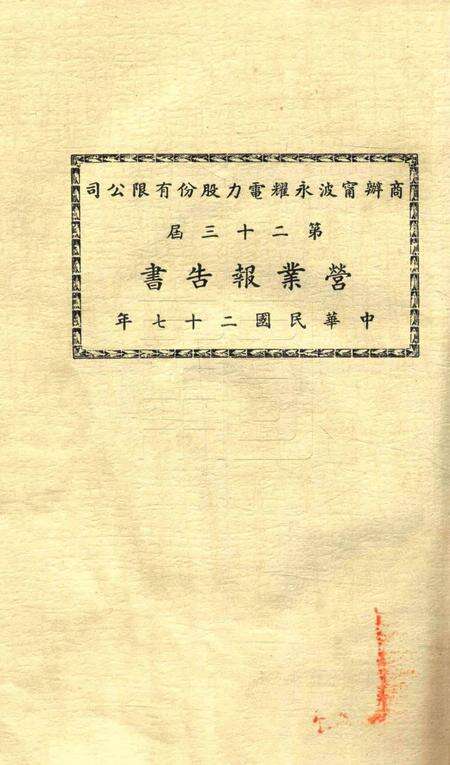 商辦甯波永耀電力股份有限公司
第二十三屆
營業報告書
中華民國二十七年